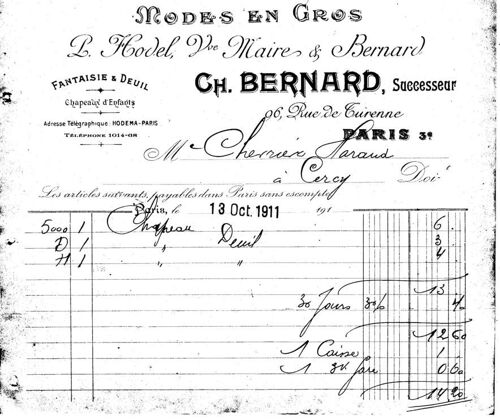 MODES EN GROS
P. Hodel, Vve Maire & Bernard
FANTAISIE & DEUIL
CH. BERNARD, Successeur
Chapeaux d'Enfants
96, Rue de Turenne
Adresse Télégraphique: HODEMA-PARIS
TÉLÉPHONE 1014-68
PARIS 3e
Me
à Cercy Doit
Les articles suivants, payables dans Paris sans escompte
Paris, le 13 Oct. 1911 191
5000 1 Chapeau 6
D 1 " Deuil 3
H 1 " " 4
13
30 Jours 3% 40
12 60
1 Caisse 1
1 0 60
14 20